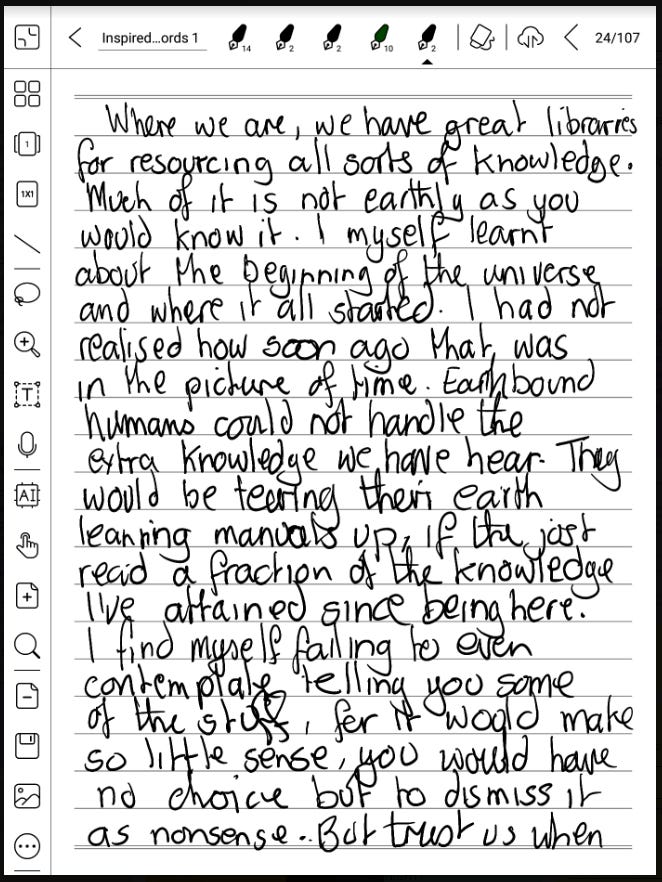 Inspired...ords 1
14
2
2
10
2
24/107
1
1X1
T
AI
Where we are, we have great libraries
for resourcing all sorts of knowledge.
Much of it is not earthly as you
would know it. I myself learnt
about the beginning of the universe
and where it all started. I had not
realised how soon ago that was
in the picture of time. Earthbound
humans could not handle the
extra knowledge we have hear. They
would be tearing their earth
learning manuals up, if the just
read a fraction of the knowledge
I've attained since being here.
I find myself failing to even
contemplate telling you some
of the stuff, for it would make
so little sense, you would have
no choice but to dismiss it
as nonsense.. But trust us when